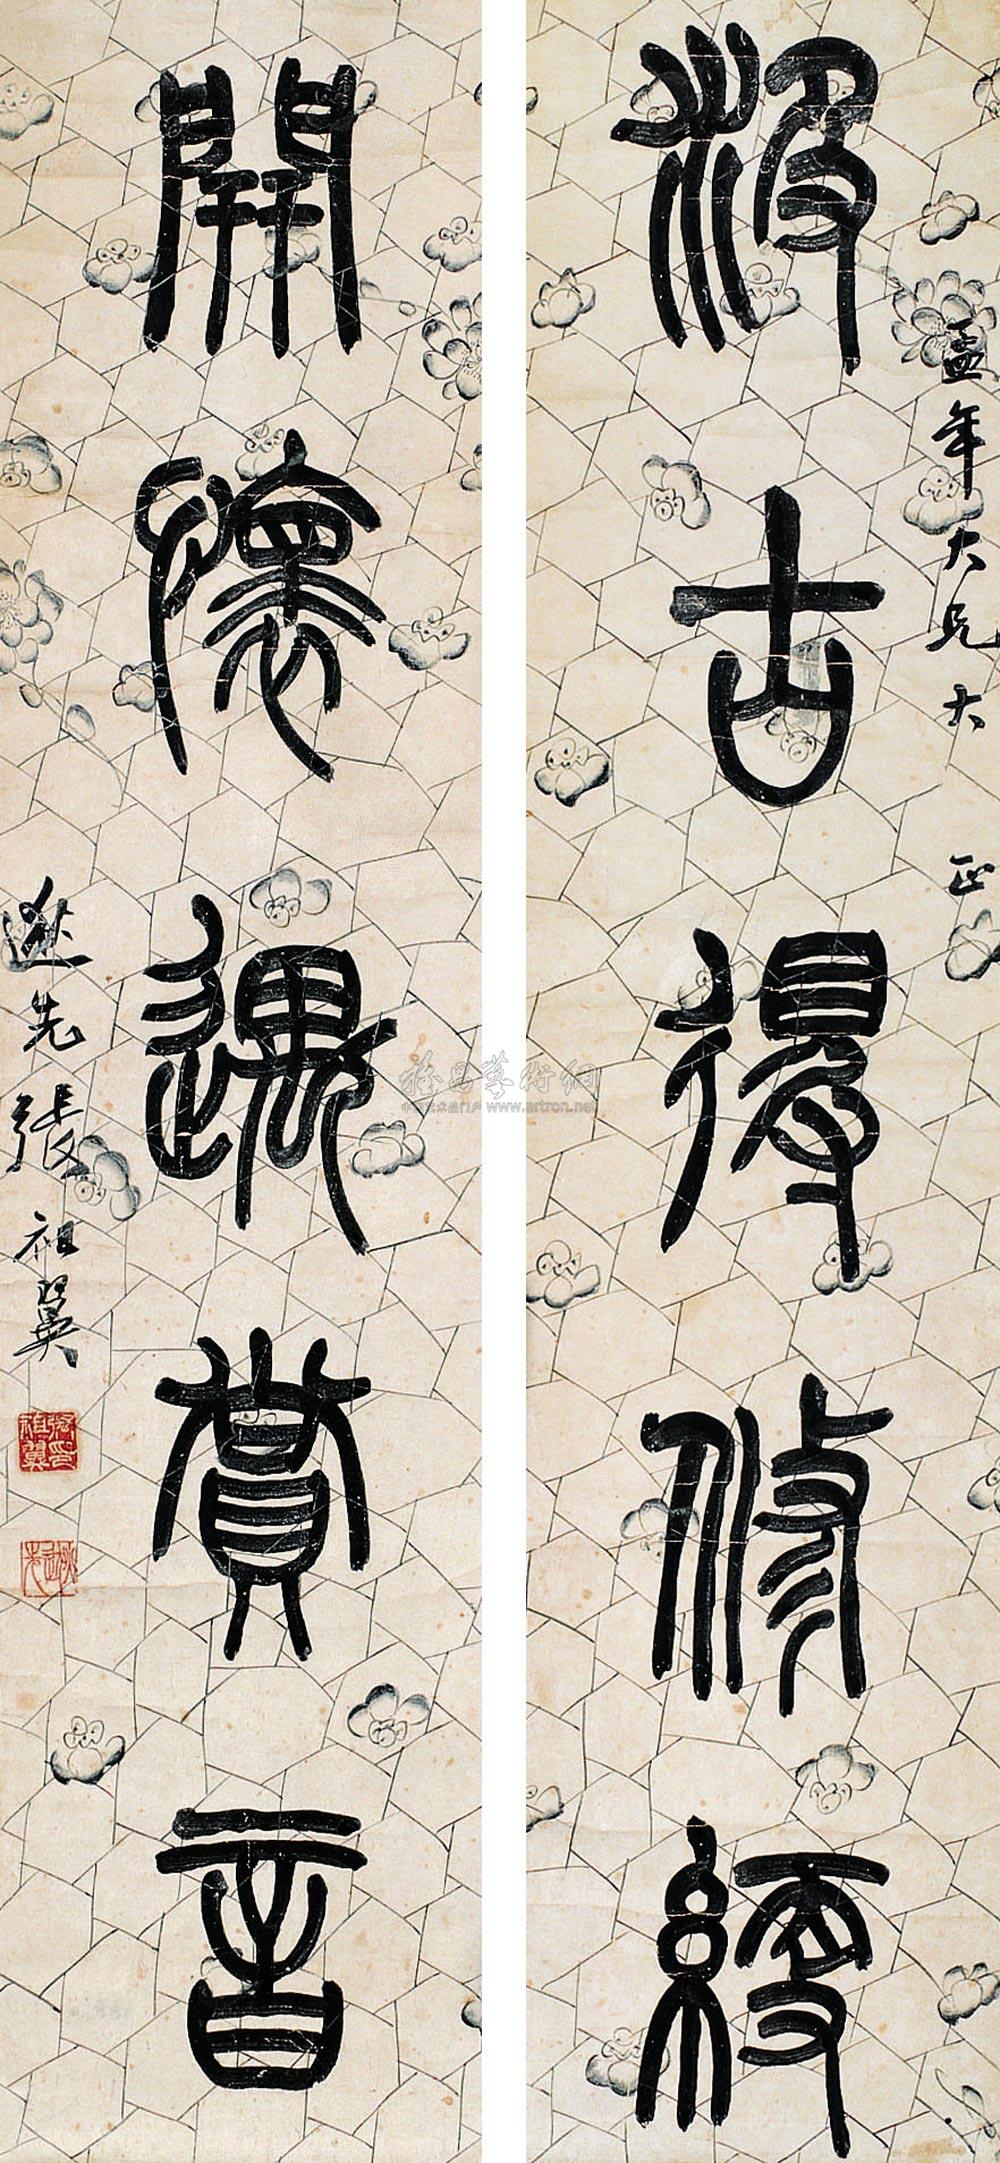 汲古得修綆
年大兄大正
開懷遇賞音
逖先張祖翼
張印祖翼
逖先
雅昌藝術網
www.artron.net